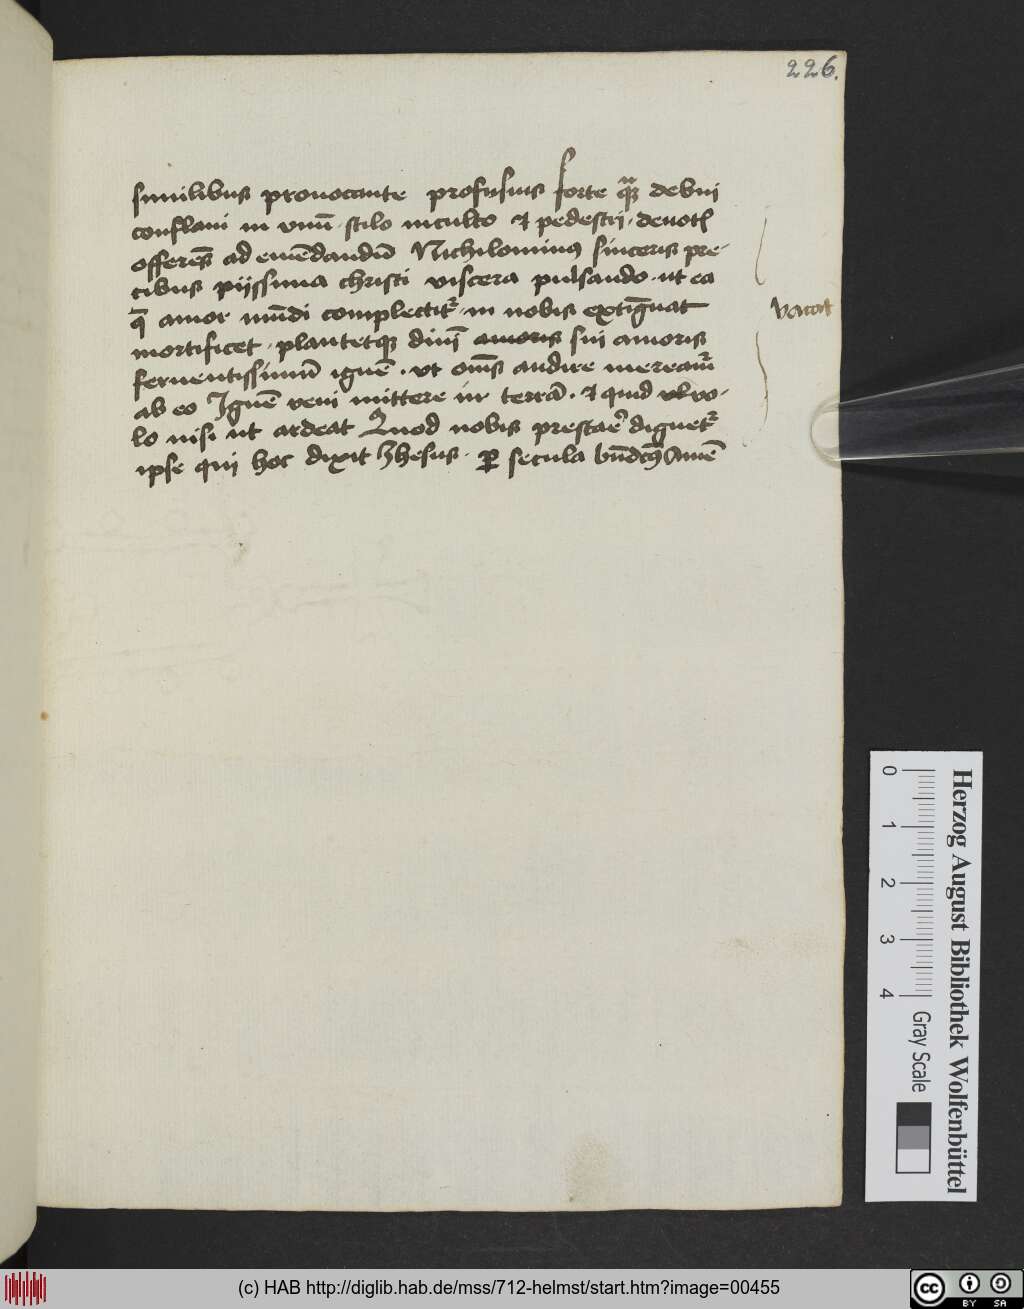 226.
similibus prouocante profusius forte qua3 debui
conflaui in vnū · stilo inculto et pedestrj · deuote
offerēs ad emēdandū Nichilominus sinceris pre-
cibus pijssima christi viscera pulsando · ut ea
q̄ amor mūdi complectitr · in nobis extīguat
mortificet · plantetque diuī amoris sui amoris
feruentissimū ignē · vt om̄s audire mereamr
ab eo Ignē veni mittere in terrā · et quid vl vo-
lo nisi ut ardeat Quod nobis prestare dignetr
ipse qui hoc dixit Ihesus · per secula bn̄dictus Amē
vacat
Herzog August Bibliothek Wolfenbüttel
0 1 2 3 4
Gray Scale
(c) HAB http://diglib.hab.de/mss/712-helmst/start.htm?image=00455
cc BY SA